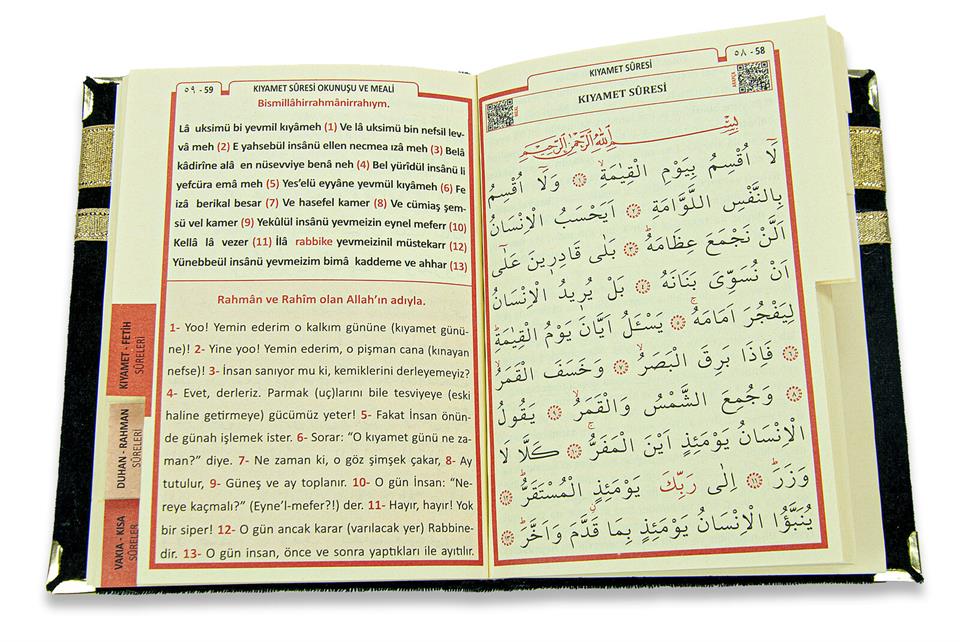 ٥٨ - 58
KIYAMET SÛRESİ
KIYAMET SÛRESİ
بِسْمِ اللّٰهِ الرَّحْمٰنِ الرَّحِيمِ
لَٓا اُقْسِمُ بِيَوْمِ الْقِيٰمَةِۙ ﴿١﴾ وَلَٓا اُقْسِمُ
بِالنَّفْسِ اللَّوَّامَةِ ﴿٢﴾ اَيَحْسَبُ الْاِنْسَانُ
اَلَّنْ نَجْمَعَ عِظَامَهُۜ ﴿٣﴾ بَلٰى قَادِرِينَ عَلٰٓى
اَنْ نُسَوِّىَ بَنَانَهُ ﴿٤﴾ بَلْ يُرِيدُ الْاِنْسَانُ
لِيَفْجُرَ اَمَامَهُۚ ﴿٥﴾ يَسْـَٔلُ اَيَّانَ يَوْمُ الْقِيٰمَةِۜ
﴿٦﴾ فَاِذَا بَرِقَ الْبَصَرُۙ ﴿٧﴾ وَخَسَفَ الْقَمَرُۙ
﴿٨﴾ وَجُمِعَ الشَّمْسُ وَالْقَمَرُۙ ﴿٩﴾ يَقُولُ
الْاِنْسَانُ يَوْمَئِذٍ اَيْنَ الْمَفَرُّۚ ﴿١٠﴾ كَلَّا لَا
وَزَرَۜ ﴿١١﴾ اِلٰى رَبِّكَ يَوْمَئِذٍ الْمُسْتَقَرُّۜ ﴿١٢﴾
يُنَبَّؤُا الْاِنْسَانُ يَوْمَئِذٍ بِمَا قَدَّمَ وَاَخَّرَۜ ﴿١٣﴾
٥٩ - 59
KIYAMET SÛRESİ OKUNUŞU VE MEALİ
Bismillâhirrahmânirrahıym.
Lâ uksimü bi yevmil kıyâmeh (1) Ve lâ uksimü bin nefsil lev-
vâ meh (2) E yahsebül insânü ellen necmea ızâ meh (3) Belâ
kâdirîne alâ en nüsevviye benâ neh (4) Bel yürîdül insânü li
yefcüra emâ meh (5) Yes'elü eyyâne yevmül kıyâmeh (6) Fe
izâ berikal besar (7) Ve hasefel kamer (8) Ve cümiaş şem-
sü vel kamer (9) Yekûlül insânü yevmeizin eynel meferr (10)
Kellâ lâ vezer (11) İlâ rabbike yevmeizinil müstekarr (12)
Yünebbeül insânü yevmeizim bimâ kaddeme ve ahhar (13)
Rahmân ve Rahîm olan Allah'ın adıyla.
1- Yoo! Yemin ederim o kalkım gününe (kıyamet günü-
ne)! 2- Yine yoo! Yemin ederim, o pişman cana (kınayan
nefse)! 3- İnsan sanıyor mu ki, kemiklerini derleyemeyiz?
4- Evet, derleriz. Parmak (uç)larını bile tesviyeye (eski
haline getirmeye) gücümüz yeter! 5- Fakat İnsan önün-
de günah işlemek ister. 6- Sorar: "O kıyamet günü ne za-
man?" diye. 7- Ne zaman ki, o göz şimşek çakar, 8- Ay
tutulur, 9- Güneş ve ay toplanır. 10- O gün İnsan: "Ne-
reye kaçmalı?" (Eyne'l-mefer?!) der. 11- Hayır, hayır! Yok
bir siper! 12- O gün ancak karar (varılacak yer) Rabbine-
dir. 13- O gün insan, önce ve sonra yaptıkları ile ayıtılır.
KIYAMET - FETİH
SÛRELERİ
DUHAN - RAHMAN
SÛRELERİ
VAKIA - KISA
SÛRELER